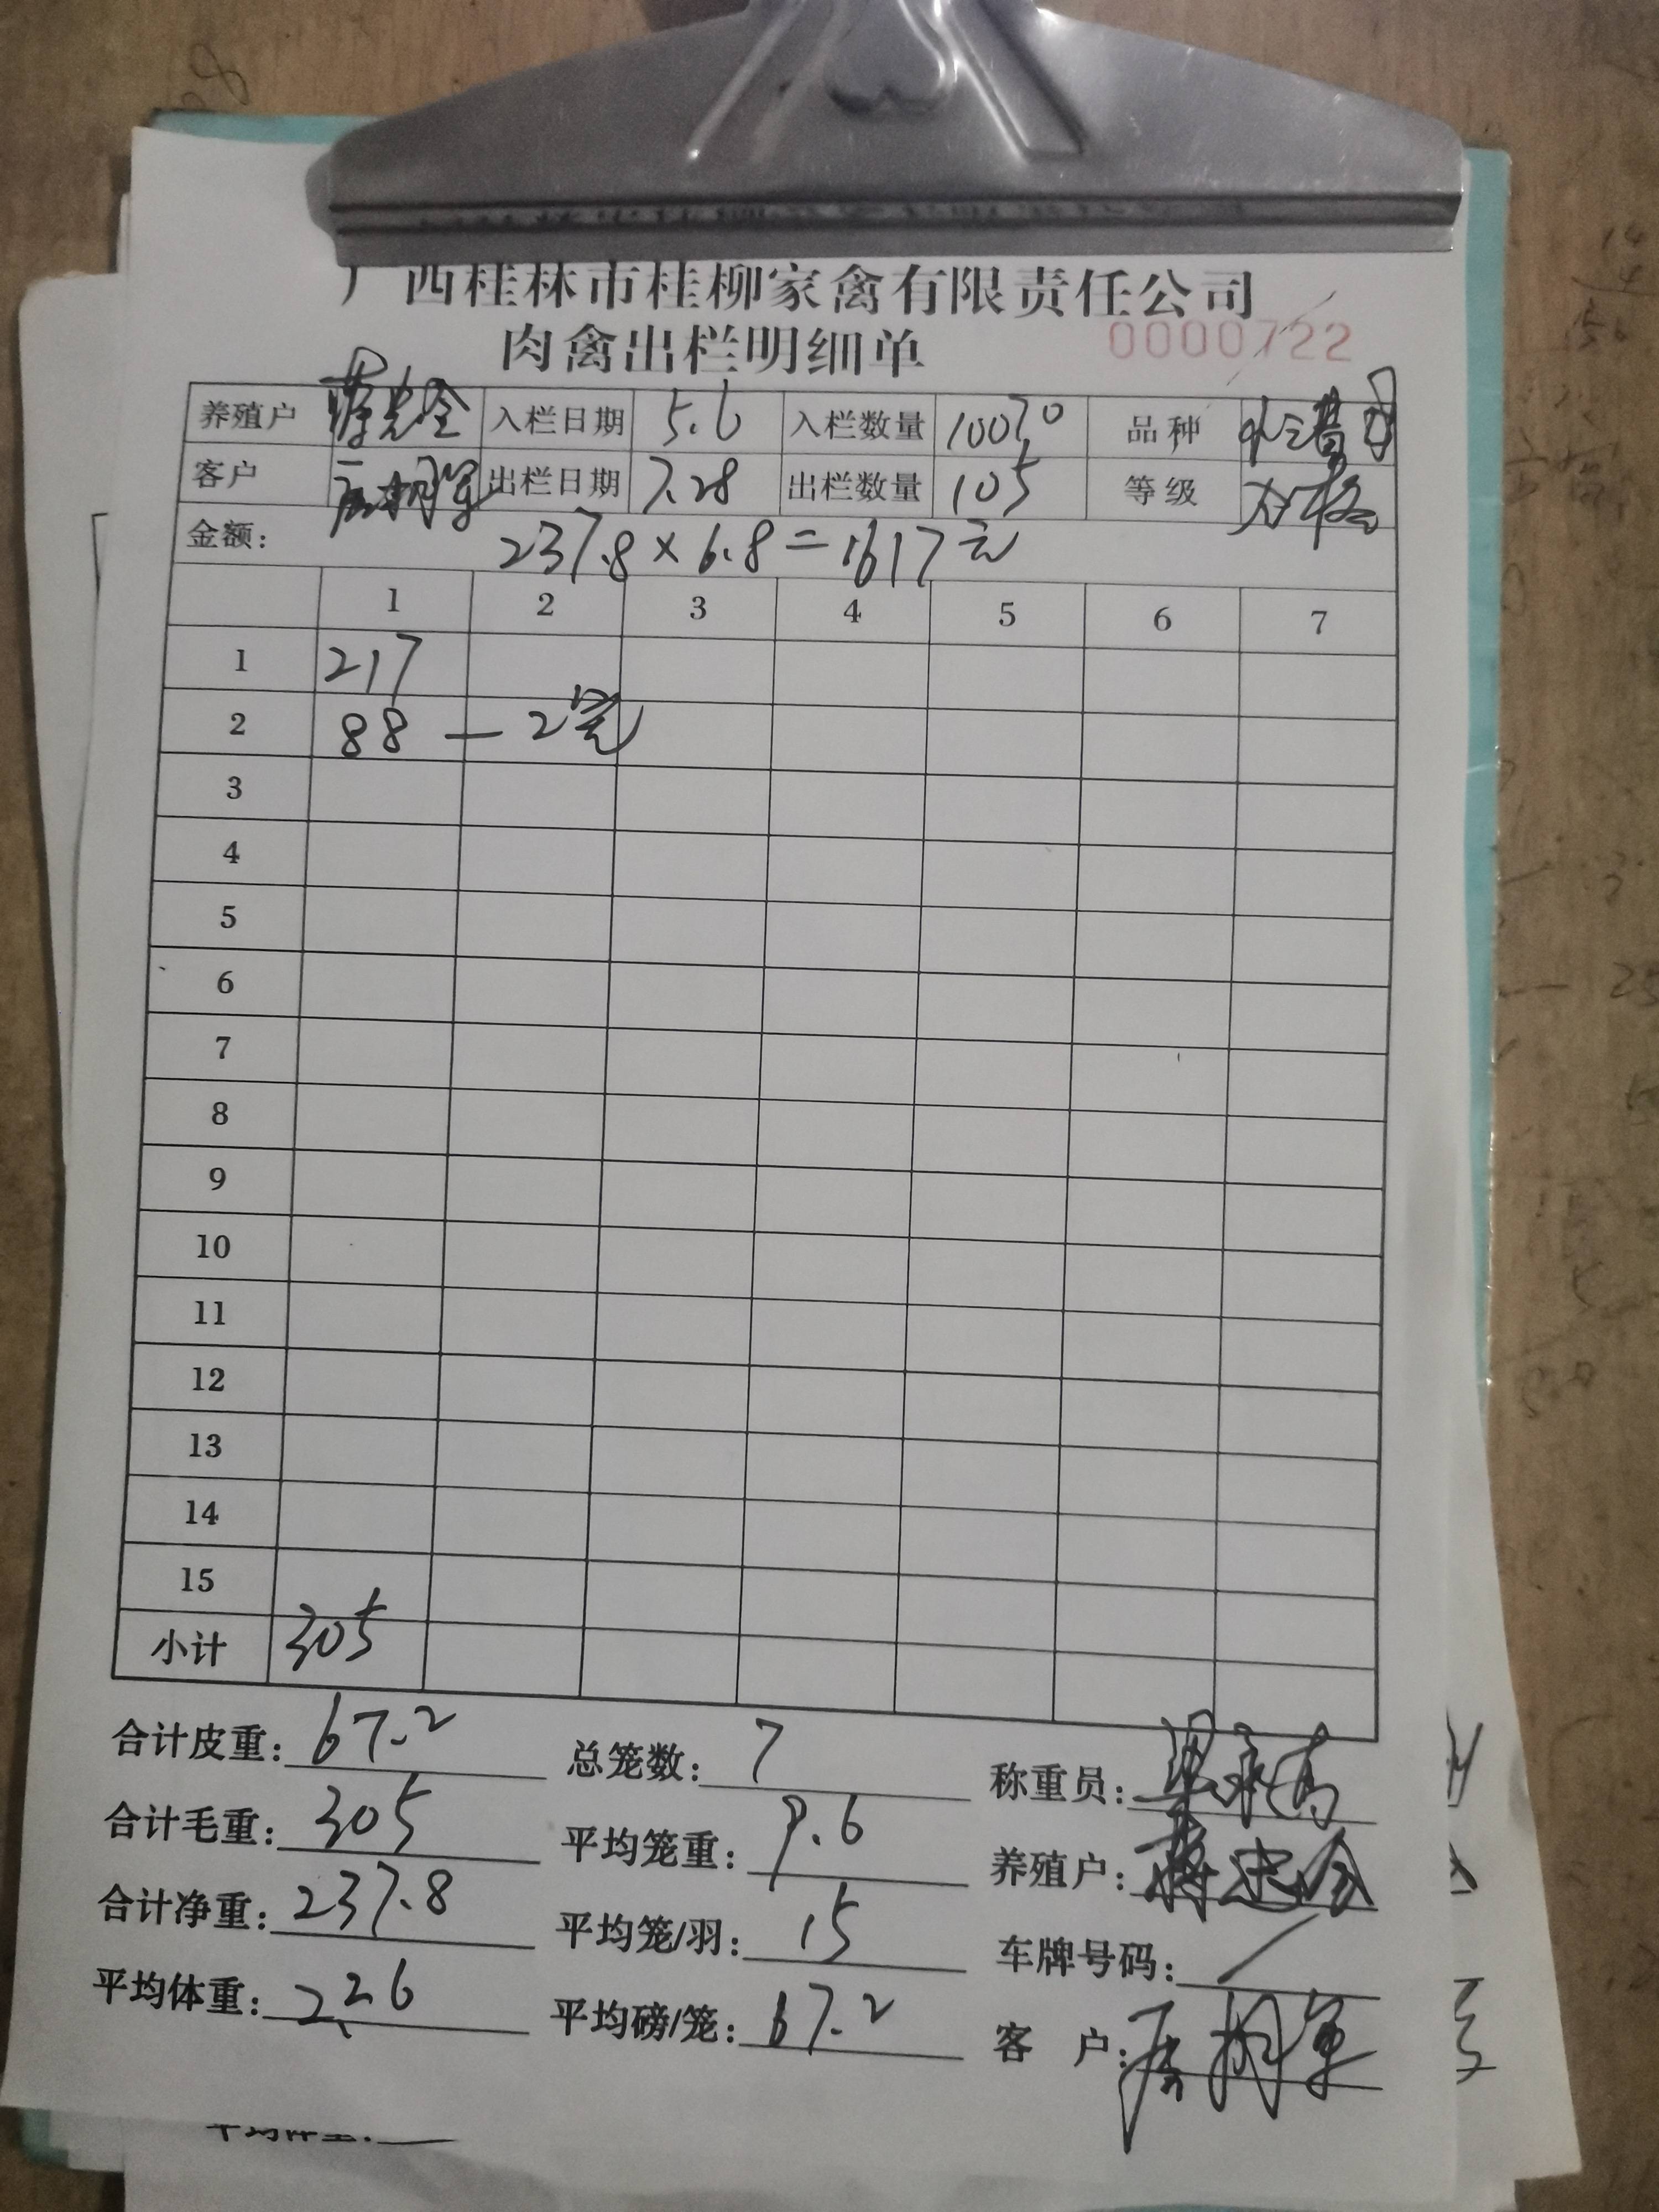 广西桂林市桂柳家禽有限责任公司
肉禽出栏明细单 0000722
养殖户 蒋忠全 入栏日期 5.6 入栏数量 10070 品种
客户 唐相军 出栏日期 7.28 出栏数量 105 等级
金额: 237.8×6.8=1617元
1 2 3 4 5 6 7
1 217
2 88 — 2
3
4
5
6
7
8
9
10
11
12
13
14
15
小计 305
合计皮重: 67.2 总笼数: 7 称重员:
合计毛重: 305 平均笼重: 9.6 养殖户: 蒋忠全
合计净重: 237.8 平均笼/羽: 15 车牌号码: /
平均体重: 2.26 平均磅/笼: 67.2 客 户: 唐相军